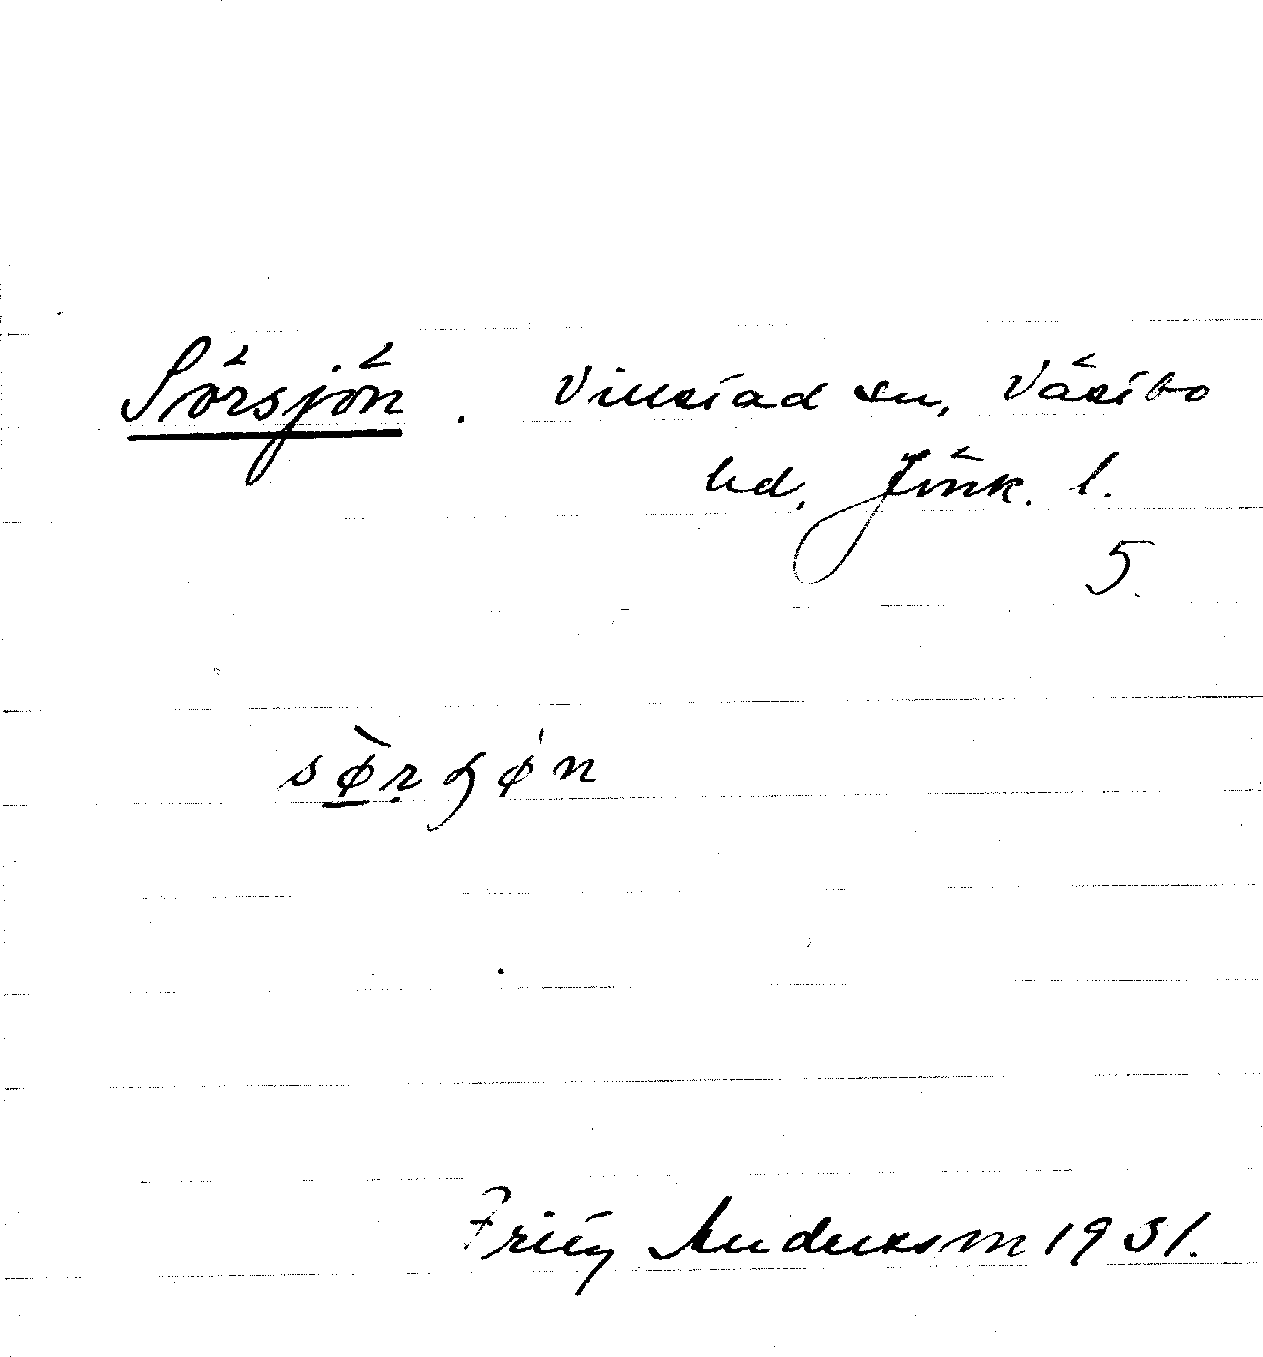 Sörsjön. Villstad sn, Västbo
hd, Jönk. l.
5.
Fritz Andersson 1931.